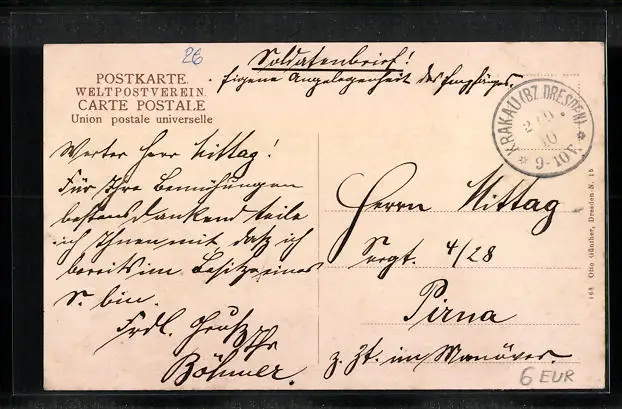 26
Soldatenbrief!
Eigene Angelegenheit des Empfängers.
POSTKARTE.
WELTPOSTVEREIN.
CARTE POSTALE
Union postale universelle
KRAKAU (BZ. DRESDEN)
10
9-10V.
Werter Herr Mittag!
Für Ihre Bemühungen
bestens dankend teile
ich Ihnen mit, daß ich
bereits im Besitze eines
S. bin.
Frdl. Gruß
Ihr
Böhmer.
Herrn Mittag
Sergt. 4/28
Pirna
z. Zt. im Manöver.
168 Otto Günther, Dresden-N. 15
6 EUR